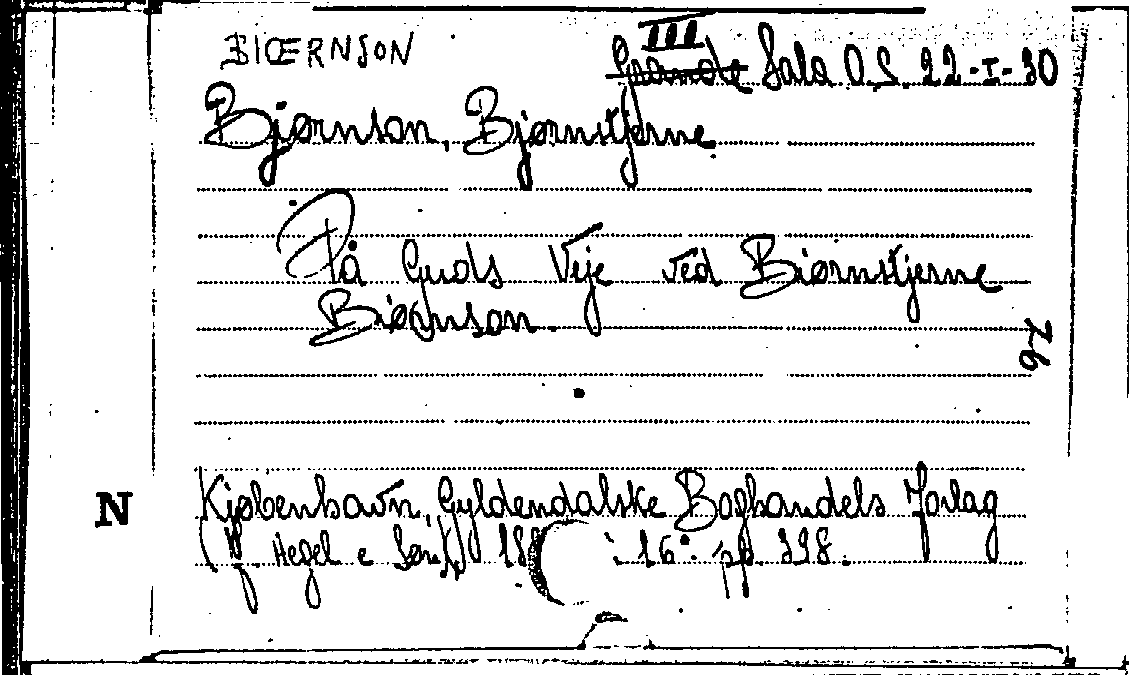 BIOERNSON
III
Grande Sala O.S. 22-I-30
Bjørnson, Bjørnstjerne.
På Guds Veje ved Biørnstjerne
Biørnson.
76
N
Kjøbenhavn, Gyldendalske Boghandels Forlag
(F. Hegel e Søn) 16°. pp. 398.